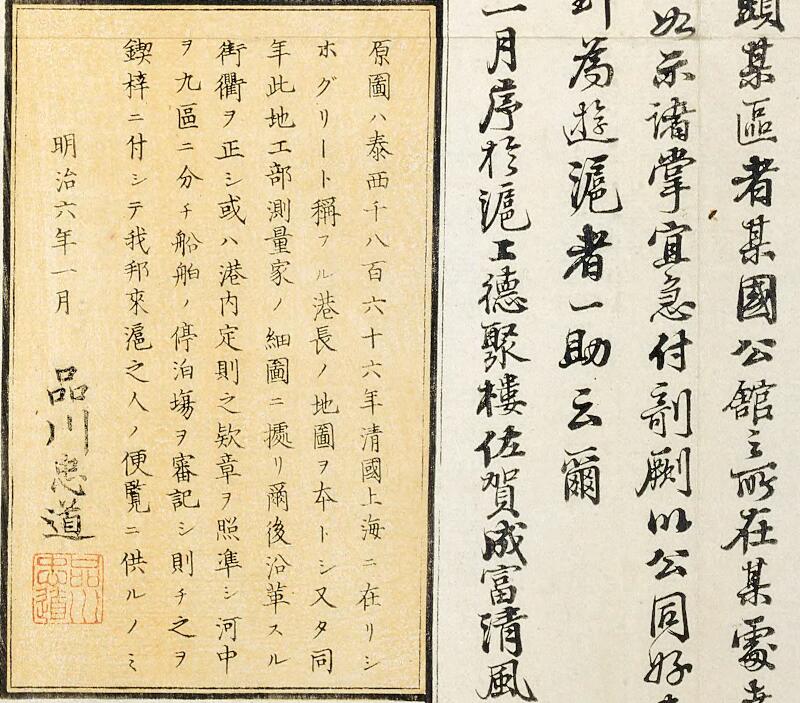 顕某區者某國公館之所在某處
如示諸掌宜急付剞劂以公同好
為遊滬者一助云爾
一月序於滬上德聚樓佐賀成富清風
原圖ハ泰西千八百六十六年清國上海ニ在リシ
ホグリート稱フル港長ノ地圖ヲ本トシ又タ同
年此地工部測量家ノ細圖ニ據リ爾後沿革スル
街衢ヲ正シ或ハ港内定則之欵章ヲ照準シ河中
ヲ九區ニ分チ船舶ノ停泊塲ヲ審記シ則チ之ヲ
鍥梓ニ付シテ我邦來滬之人ノ便覧ニ供ルノミ
明治六年一月
品川忠道
品川忠道